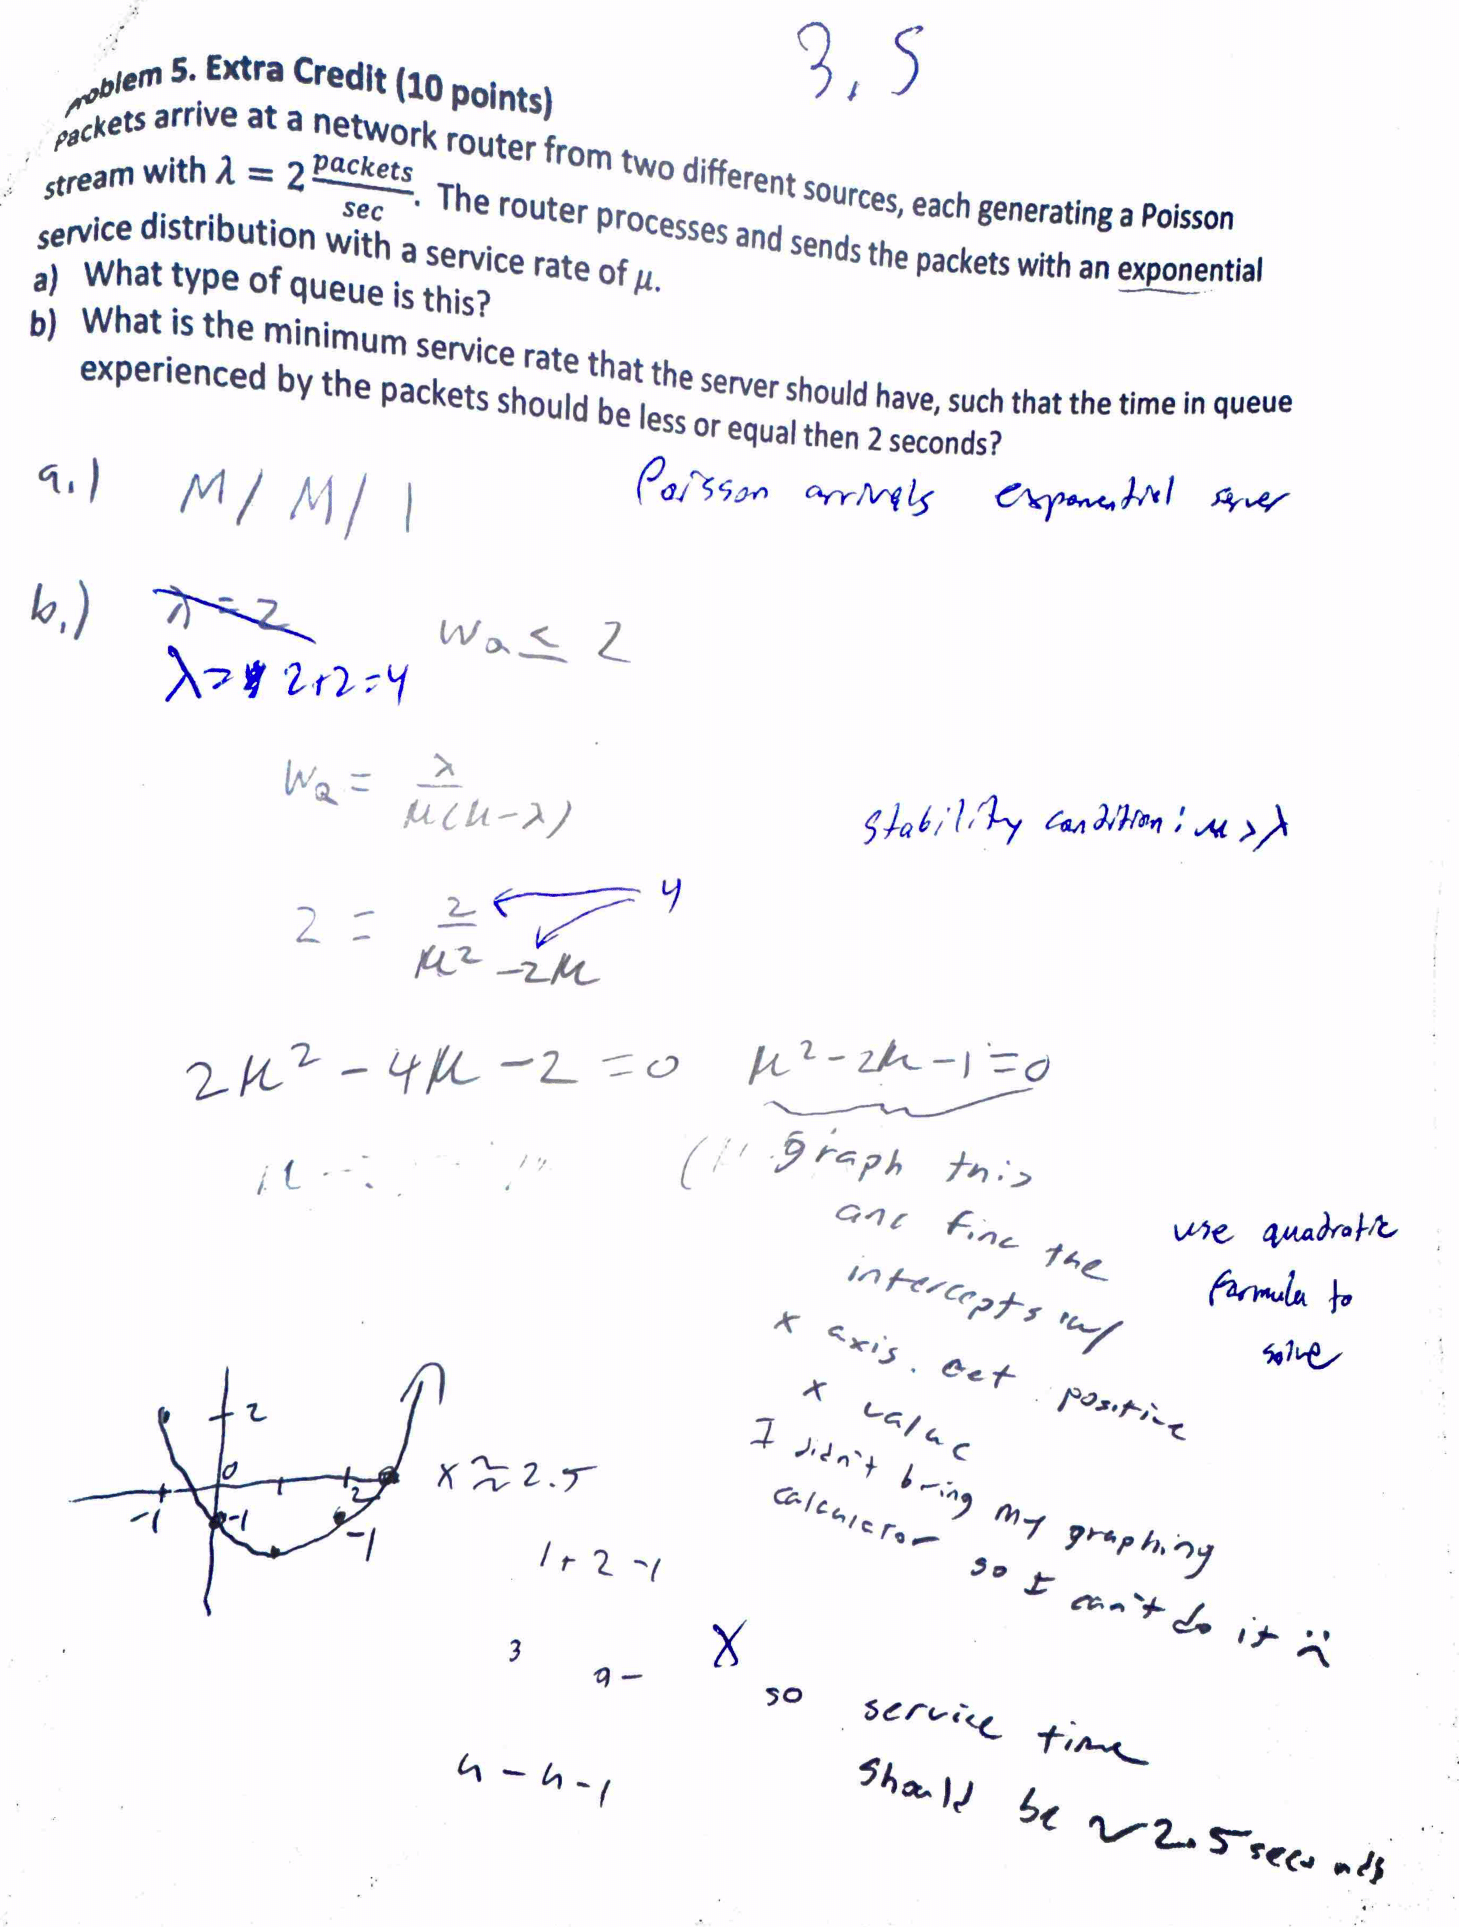 3.5
Problem 5. Extra Credit (10 points)
Packets arrive at a network router from two different sources, each generating a Poisson
stream with λ = 2 packets/sec. The router processes and sends the packets with an exponential
service distribution with a service rate of μ.
a) What type of queue is this?
b) What is the minimum service rate that the server should have, such that the time in queue
experienced by the packets should be less or equal then 2 seconds?
a.) M/M/1 Poisson arrivals exponential server
b.) λ = 2 WQ ≤ 2
λ = 2+2=4
WQ = λ/μ(μ-λ)
stability condition: μ > λ
2 = 2/μ² -2μ 4
2μ² - 4μ - 2 = 0 μ² - 2μ - 1 = 0
graph this
anc finc the
intercepts w/
x axis. Get positive
x value
use quadratic
formula to
solve
I didn't bring my graphing
calculator so I can't do it
2
0
-1 -1 2 -1
x ≈ 2.5
1 + 2 -1
3
9 -
4 - 4 - 1
X
so service time
should be ~2.5 seconds